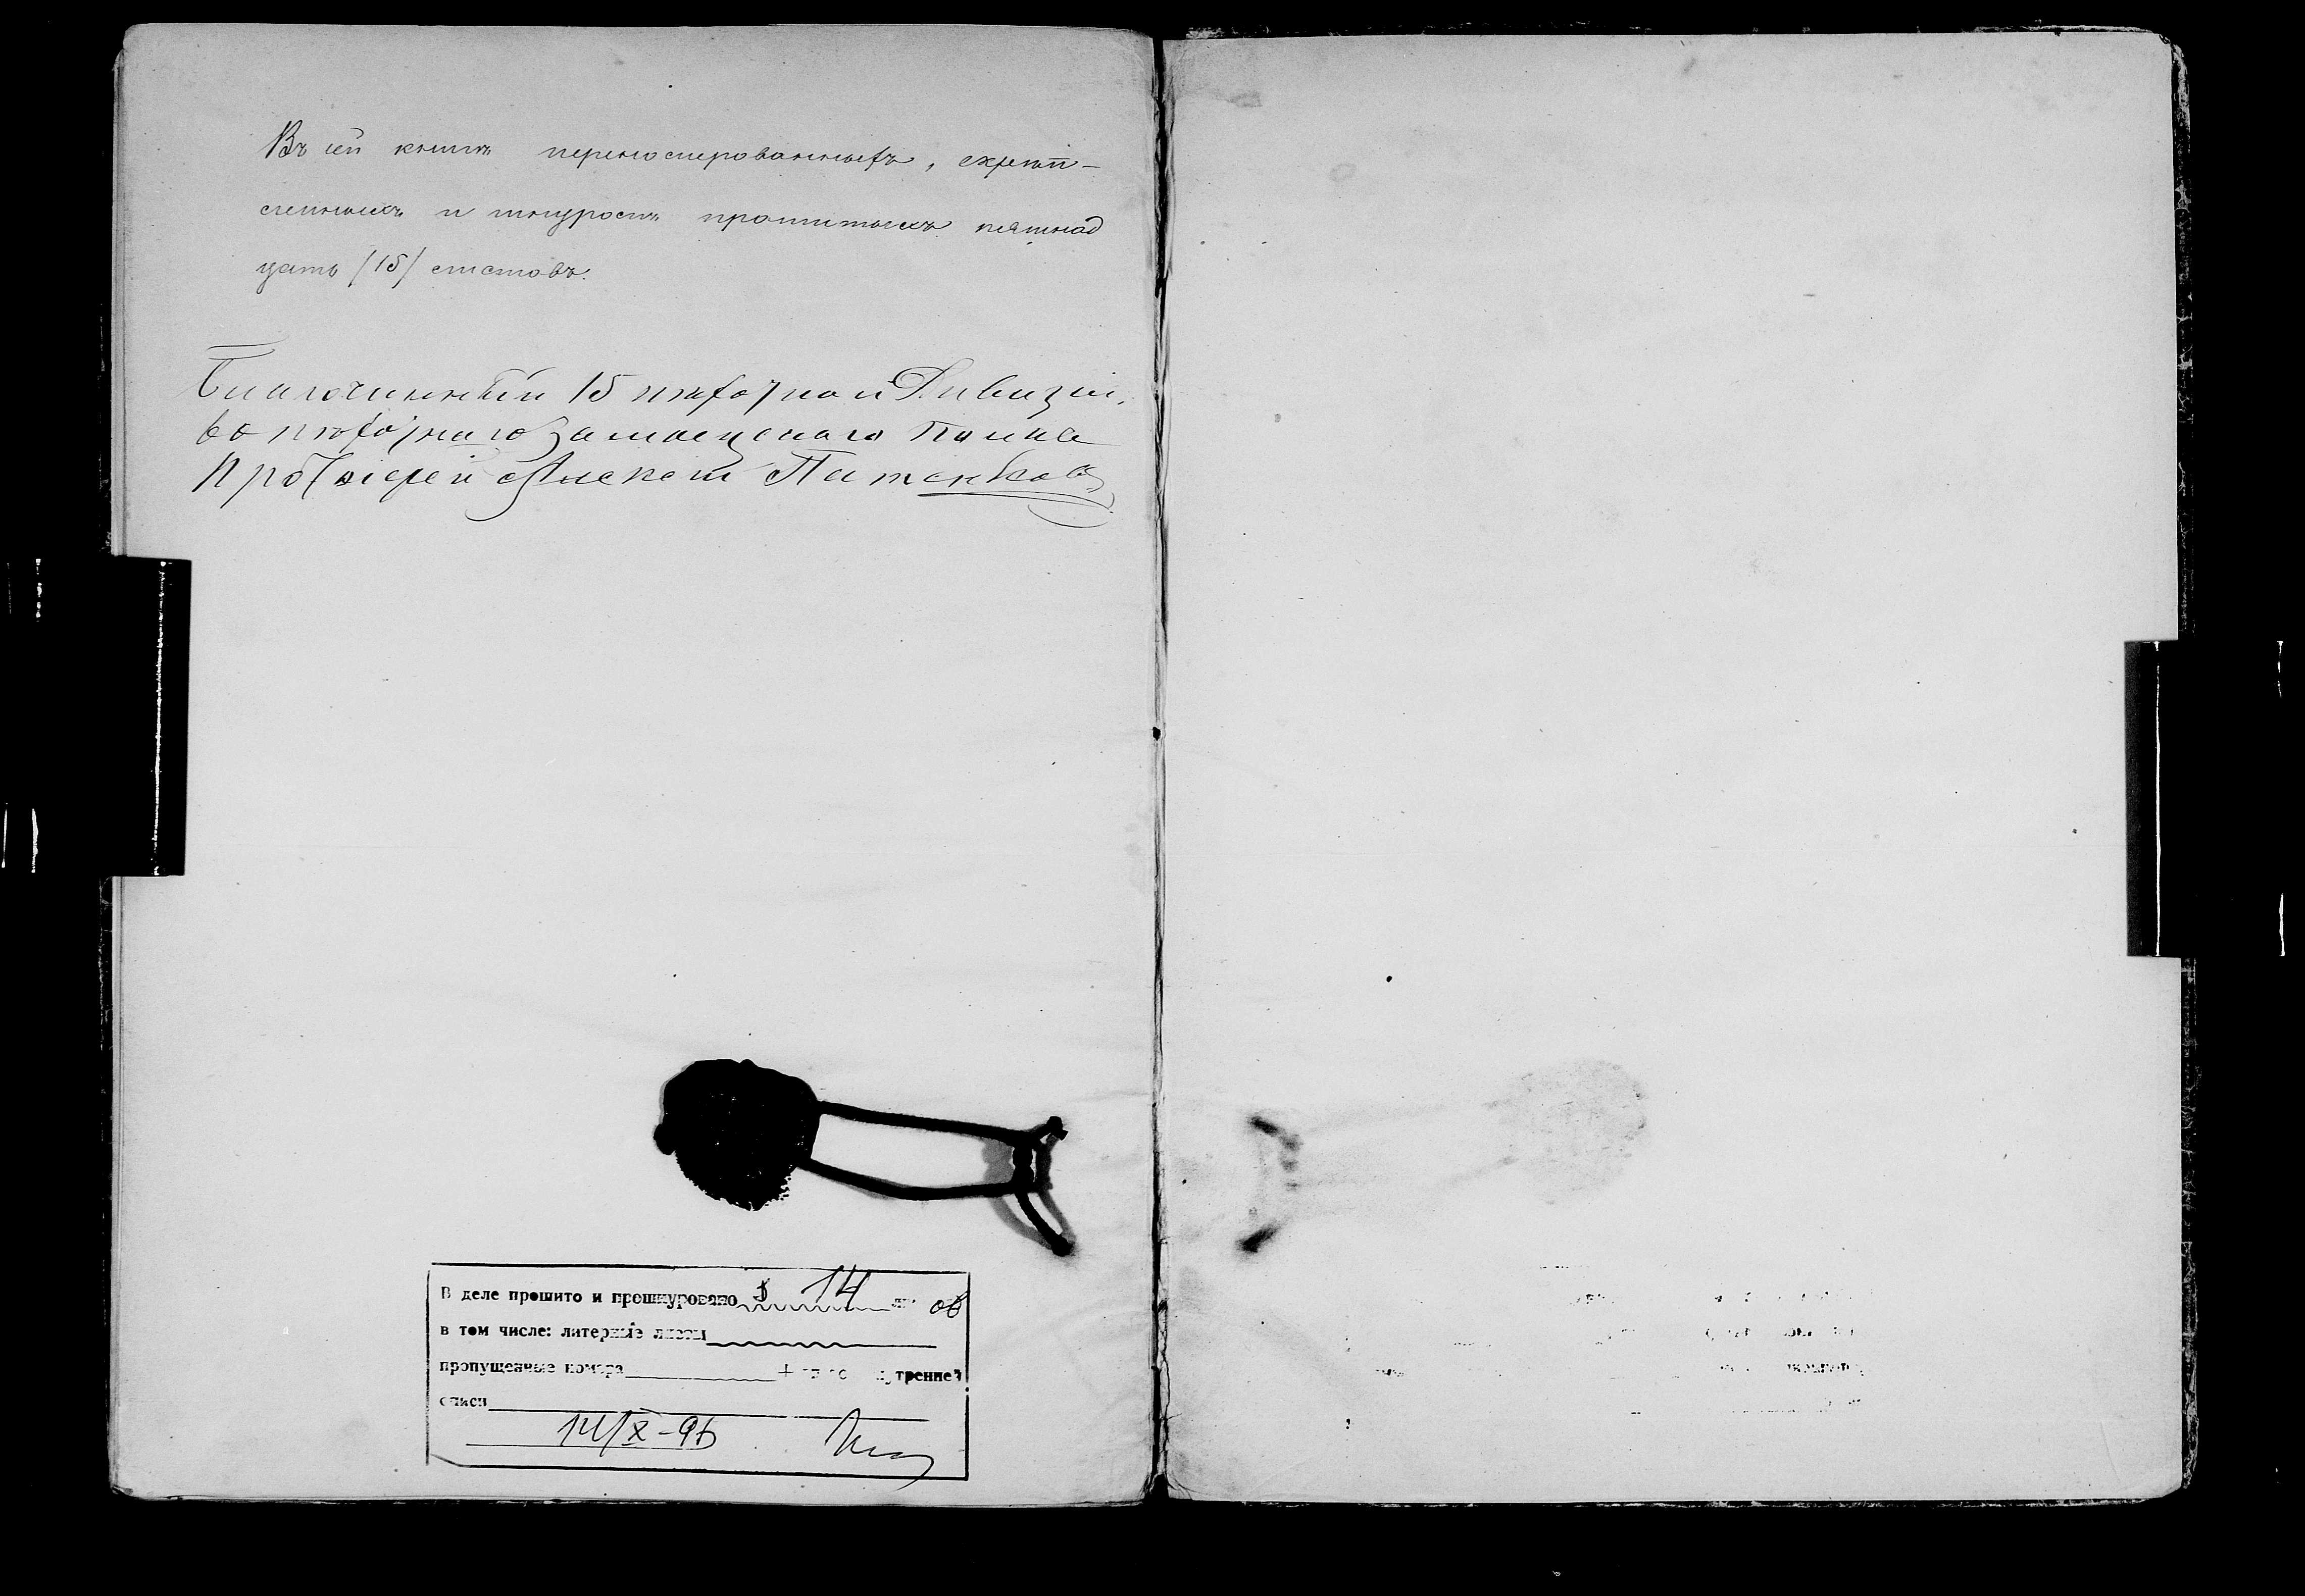 Въ сей книгѣ перенумерованныхъ, скрѣп-
ленныхъ и шнуромъ прошитыхъ пятнад
цать /15/ листовъ.
Благочинный 15 пѣхотной Дивизіи,
60 пѣхотнаго Замосцскаго Полка
Протоіерей Алексѣй
В деле прошито и прошнуровано 14 об
в том числе: литерные листы
пропущенные номера + внутренней
описи
14/X-96